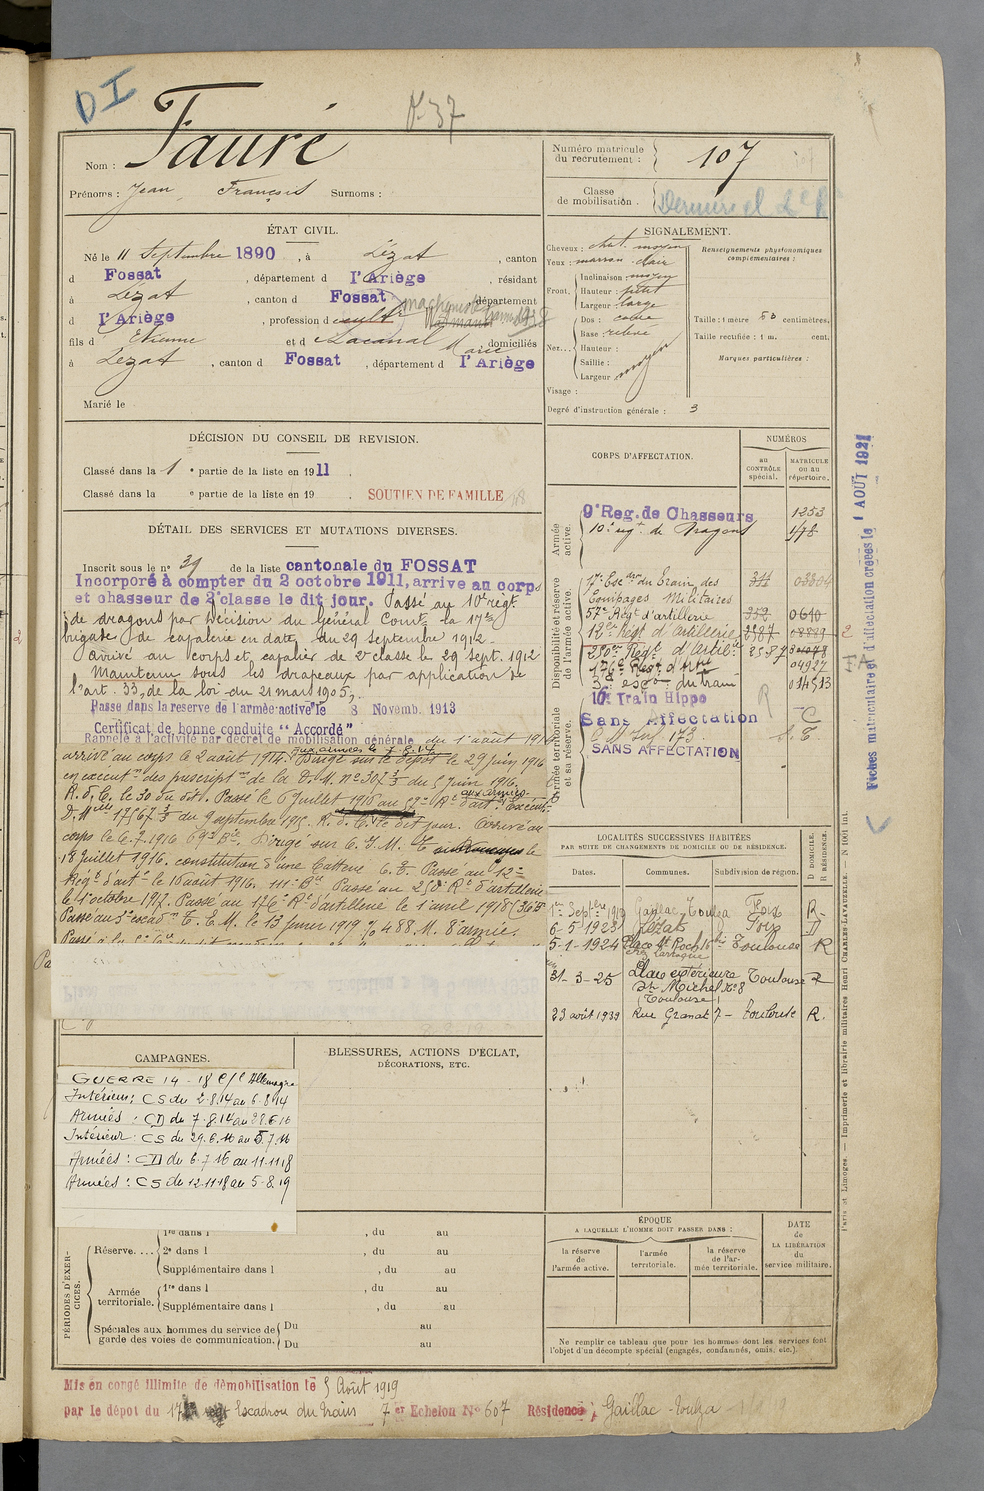 DI
F-37
Nom : Fauré
Prénoms : Jean François Surnoms :
Numéro matricule du recrutement : 107
Classe de mobilisation .
ÉTAT CIVIL.
Né le 11 Septembre 1890, à Lézat, canton
d Fossat, département d l'Ariège, résidant
à Lézat, canton d Fossat, département
d l'Ariège, profession d cultr
fils d Etienne et d Lacanal Marie, domiciliés
à Lezat, canton d Fossat, département d l'Ariège
Marié le
SIGNALEMENT.
Cheveux : chat. moyen
Yeux : marron clair
Front. Inclinaison : moyen
Hauteur : petit
Largeur : large
Nez... Dos : cave
Base : relevé
Hauteur :
Saillie : moyen
Largeur
Visage :
Degré d'instruction générale : 3
Renseignements physionomiques complémentaires :
Taille : 1 mètre 53 centimètres.
Taille rectifiée : 1 m. cent.
Marques particulières :
DÉCISION DU CONSEIL DE REVISION.
Classé dans la 1e partie de la liste en 1911.
Classé dans la e partie de la liste en 19 . SOUTIEN DE FAMILLE
DÉTAIL DES SERVICES ET MUTATIONS DIVERSES.
Inscrit sous le n° 39 de la liste cantonale du FOSSAT
Incorporé à compter du 2 octobre 1911, arrive au corps
et chasseur de 2e classe le dit jour. Passé au 10e régt
de dragons par Décision du Général Comt la 17e
brigade de cavalerie en date du 29 septembre 1912
arrivé au corps et cavalier de 2e classe le 29 sept. 1912
Maintenu sous les drapeaux par application de
l'art. 33 de la loi du 21 mars 1905.
Passé dans la reserve de l'armée active le 8 Novemb. 1913
Certificat de bonne conduite "Accordé"
Rappelé à l'activité par décret de mobilisation générale du 1 août 1914
aux armées le 7.8.14
arrivé au corps le 2 août 1914. Dirigé sur le dépôt le 29 juin 1916
en exécutn des prescriptns de la D. M. n° 307 3/3 du 5 Juin 1916.
R. d. C. le 30 du dit. Passé le 6 Juillet 1916 au 57e Rt d'art. Exécut.
aux armées
D. Mlle 17567 3/3 du 9 septembre 1915. R. d. C. le dit jour. Arrivé au
corps le 6.7.1916 69e Bie. Dirigé sur C. I. M. le
18 Juillet 1916. constitution d'une batterie 6. T. Passé au 12e
Régt d'artie le 16 août 1916. 111e Bie. Passé au 250e Rt d'artillerie
le 1 octobre 1917. Passé au 176e Rt d'artillerie le 1 avril 1918
Passé au 3e escadn T. E. M. le 13 Janvier 1919 488. M. 8e armée.
CORPS D'AFFECTATION.
NUMÉROS
au CONTRÔLE spécial.
MATRICULE ou au répertoire.
Armée active.
9e Reg. de Chasseurs 1253
10e regt de Dragons 178
Disponibilité et réserve de l'armée active.
17e Escon du train des Equipages Militaires 311
57e Régt d'artillerie 352 0610
12e Régt d'Artillerie 2387
250e Régt d'Artillie
176e Régt d'Artie 04927
3e escon du train 014513
16e Train Hippo
Armée territoriale et sa réserve.
Sans Affectation
SANS AFFECTATION
Fiches matriculaire et d'affectation créées le 1 AOÛT 1921
LOCALITÉS SUCCESSIVES HABITÉES
PAR SUITE DE CHANGEMENTS DE DOMICILE OU DE RÉSIDENCE.
D DOMICILE. R RÉSIDENCE.
Dates. Communes. Subdivision de région.
1er Septbre 1919 Gaillac Toulza Foix R.
6-5-1923 Lézat Foix D
5-1-1924 Place St Roch 16 bis Toulouse R
chez Lartogue
31-3-25 Place extérieure St Michel N° 8 (Toulouse) Toulouse R
23 août 1939 Rue Granat 7 - Toulouse R.
CAMPAGNES.
GUERRE 14 - 18 c/c Allemagne
Intérieur : CS du 2.8.14 au 6.8.14
Armées : CD du 7.8.14 au 28.6.16
Intérieur : CS du 29.6.16 au 5.7.16
Armées : CD du 6.7.16 au 11.11.18
Armées : CS du 12.11.18 au 5.8.19
BLESSURES, ACTIONS D'ECLAT,
DÉCORATIONS, ETC.
PÉRIODES D'EXERCICES.
Réserve.... 1re dans l , du au
2e dans l , du au
Supplémentaire dans l , du au
Armée territoriale. 1re dans l , du au
Supplémentaire dans l , du au
Spéciales aux hommes du service de garde des voies de communication. Du au
Du au
ÉPOQUE
A LAQUELLE L'HOMME DOIT PASSER DANS :
la réserve de l'armée active.
l'armée territoriale.
la réserve de l'armée territoriale.
DATE de LA LIBÉRATION du service militaire.
Ne remplir ce tableau que pour les hommes dont les services font
l'objet d'un décompte spécial (engagés, condamnés, omis, etc.).
Paris et Limoges. — Imprimerie et librairie militaires Henri CHARLES-LAVAUZELLE. — N 1001 bis.
Mis en congé illimité de démobilisation le 5 Août 1919
par le dépot du 17 Escadron du train 7e Echelon N° 607 Résidence Gaillac-Toulza